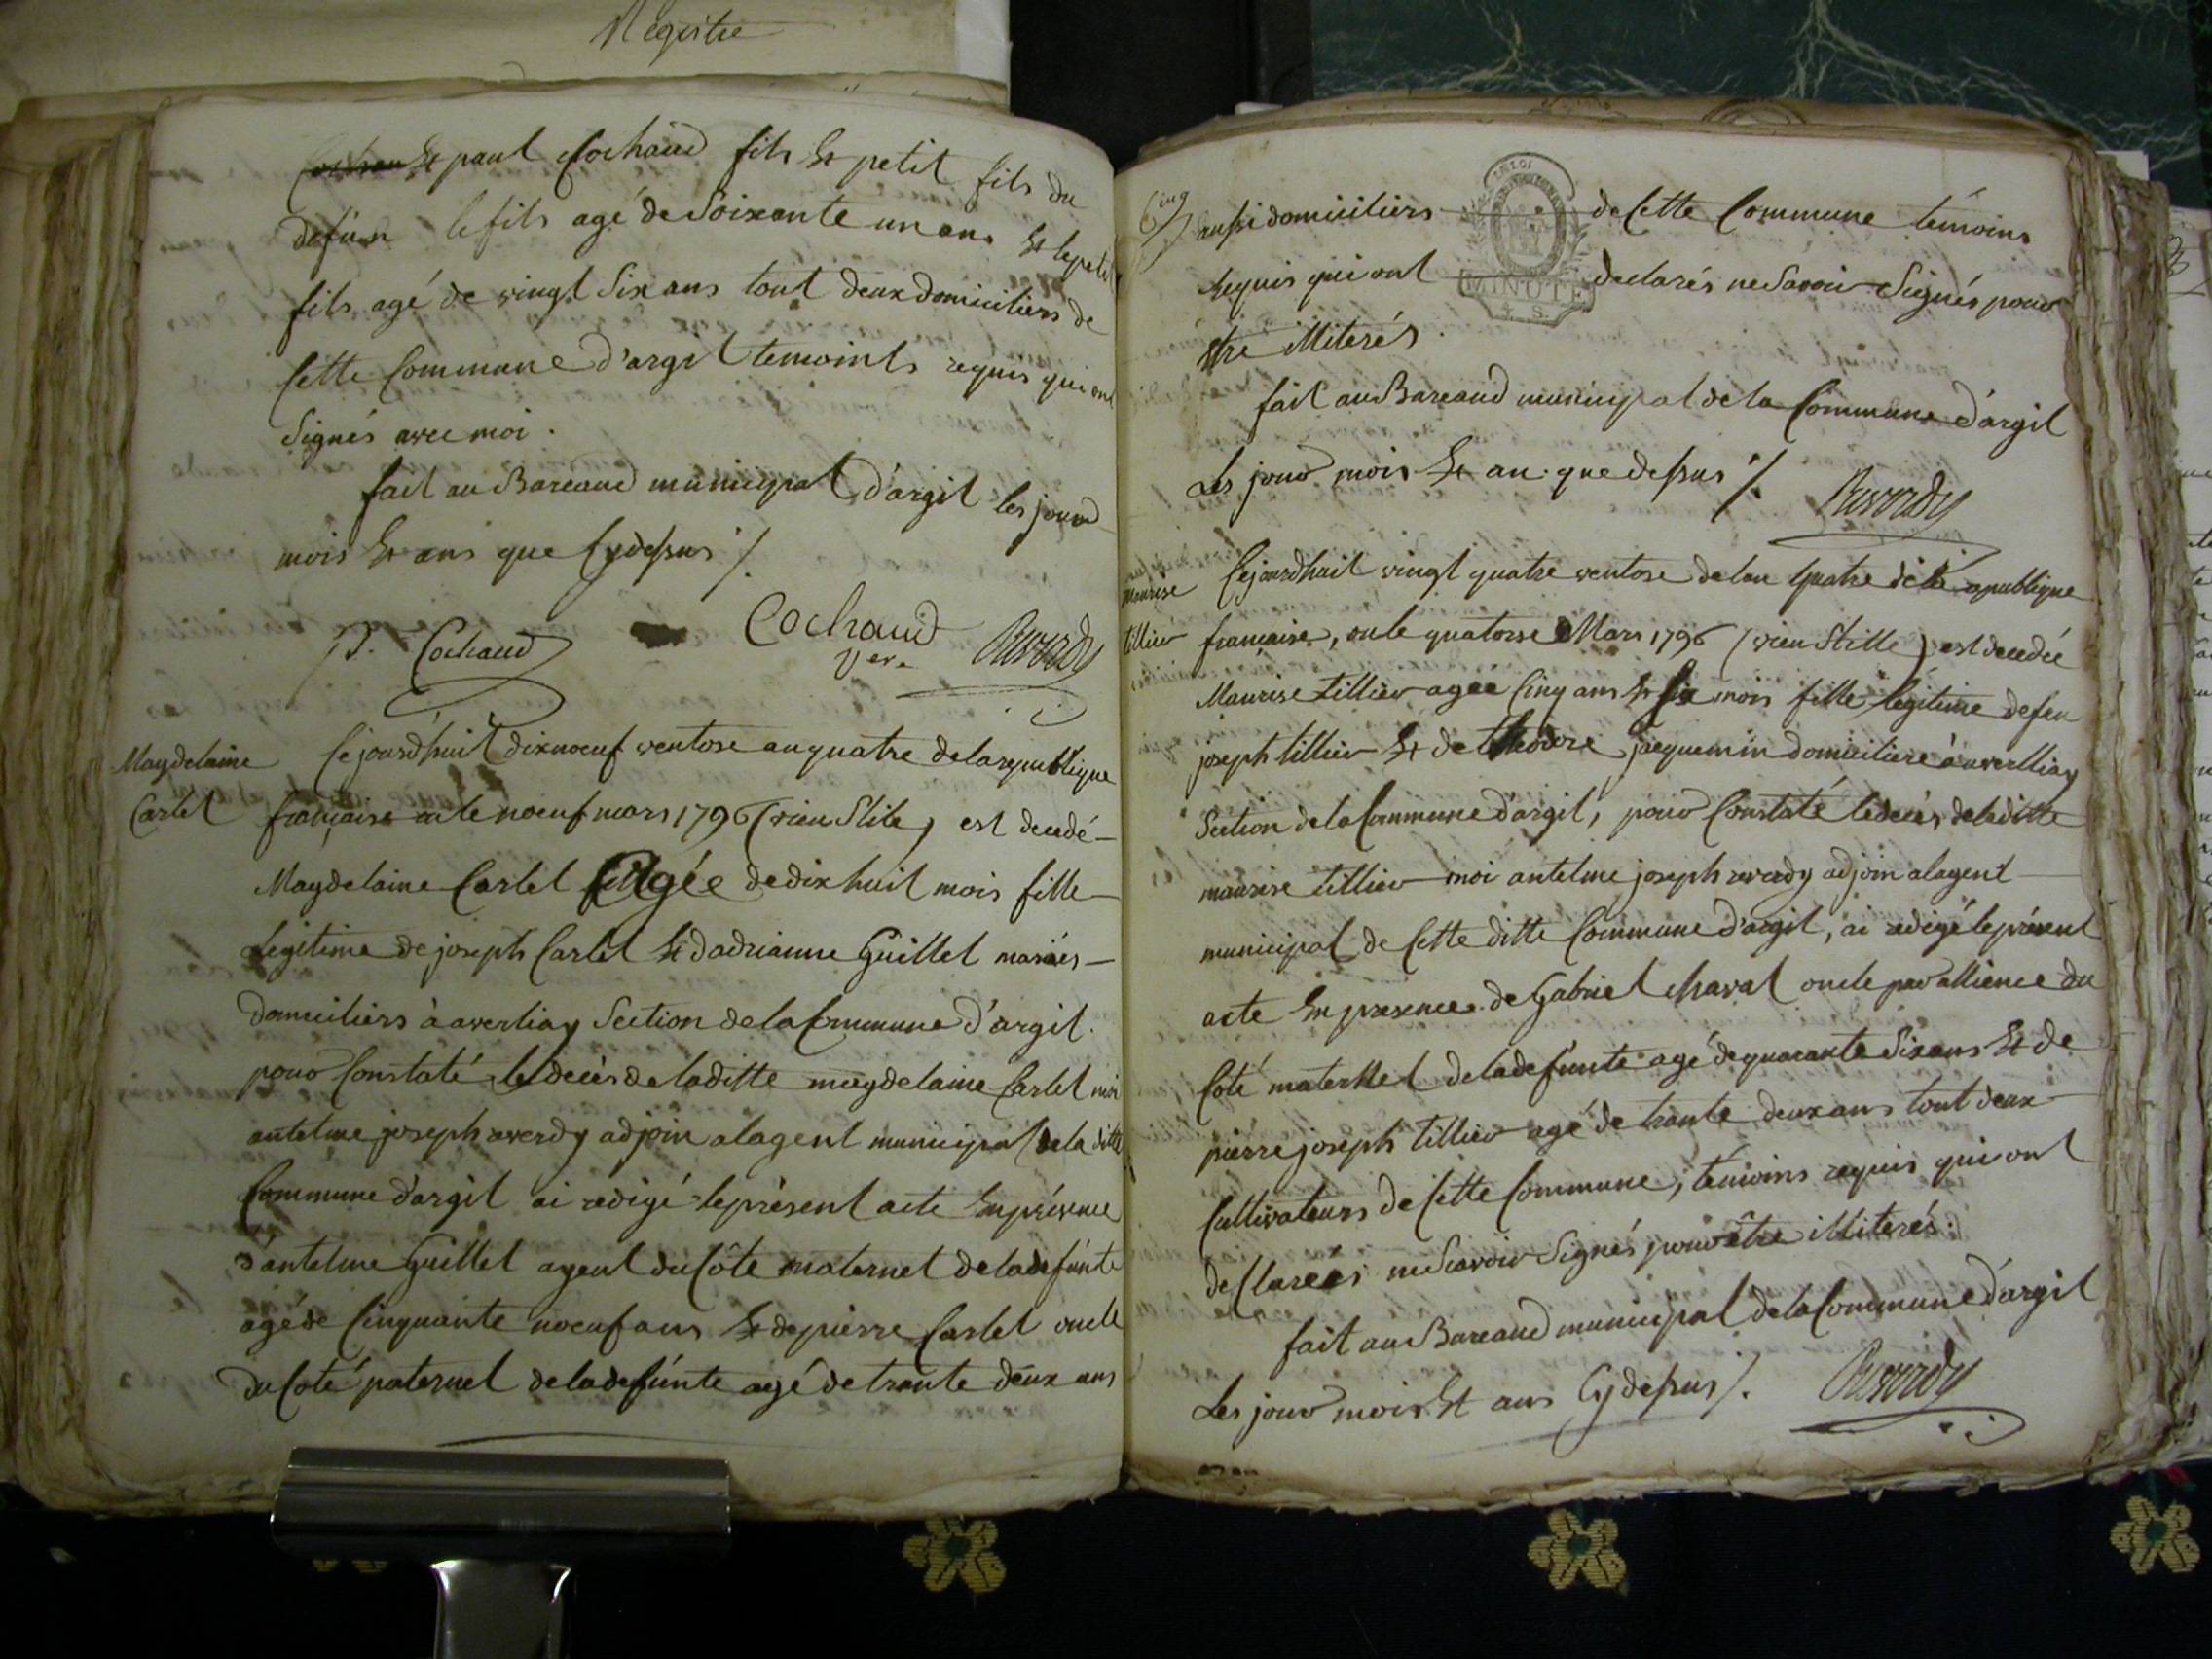 Registre
Cochau & paul Cochaud fils & petit fils du
defun le fils agé de Soixante un ans & le petit
fils agé de vingt Six ans tout deux domiciliers de
Cette Commune d'argil temoints requis qui ont
Signés avec moi.
fait au Bareaud municipal d'argil les jourd
mois & ans que Cydessus /.
P. Cochaud Cochaud
Ver. Ruverdy
Magdelaine
Carlet
Cejourdhuit dixnoeuf ventose an quatre de la republique
française ou le noeuf mars 1796 (vieu Stile) est decedé
Magdelaine Carlet Agée de dix huit mois fille
Legitime de joseph Carlet & dadrianne Guillet mariés
domiciliers à averliay Section de la Commune d'argil.
pour Constaté le decès de laditte magdelaine Carlet moi
antelme joseph averdy adjoin a lagent municipal de la ditte
Commune d'argil ai redigé le présent acte En présence
d'antelme Guillet agent du Côte maternel de la defúnte
agé de Cinquante noeuf ans & de pierre Carlet oncle
du Coté paternel de la defúnte agé de trante deux ans
Cinq
aussi domiciliers de Cette Commune témoins
requis qui ont declarés ne Savoir Signés pour
MINUTE
4 S.
être illiterés.
fait au Bareaud municipal de la Commune d'argil
Les jour mois & an que dessus /. Ruverdy
Maurise
tillier
Cejourdhuit vingt quatre ventose de lan quatre de la republique
française, ou le quatorse Mars 1796 (vieu Stille) est decedée
Maurise tillier agée Cinq ans & Six mois fille legitime de feu
joseph tillier & de theodore jacquemin domiciliere à averlliay
Section de la Commune d'argil, pour Constaté le decès de laditte
maurise tillier moi antelme joseph averdy adjoin a lagent
municipal de Cette ditte Commune d'argil, ai redigé le présent
acte En presence de Gabriel Chaval oncle par allience du
Coté maternel de la defunte agé de quarante Six ans & de
pierre joseph tillier agé de trante deux ans tout deux
Cultivateurs de Cette Commune, témoins requis qui ont
declarées ne Scavoir Signés pour être illiterés.
fait au Bareaud municipal de la Commune d'argil
Les jour mois & ans Cydessus /. Ruverdy